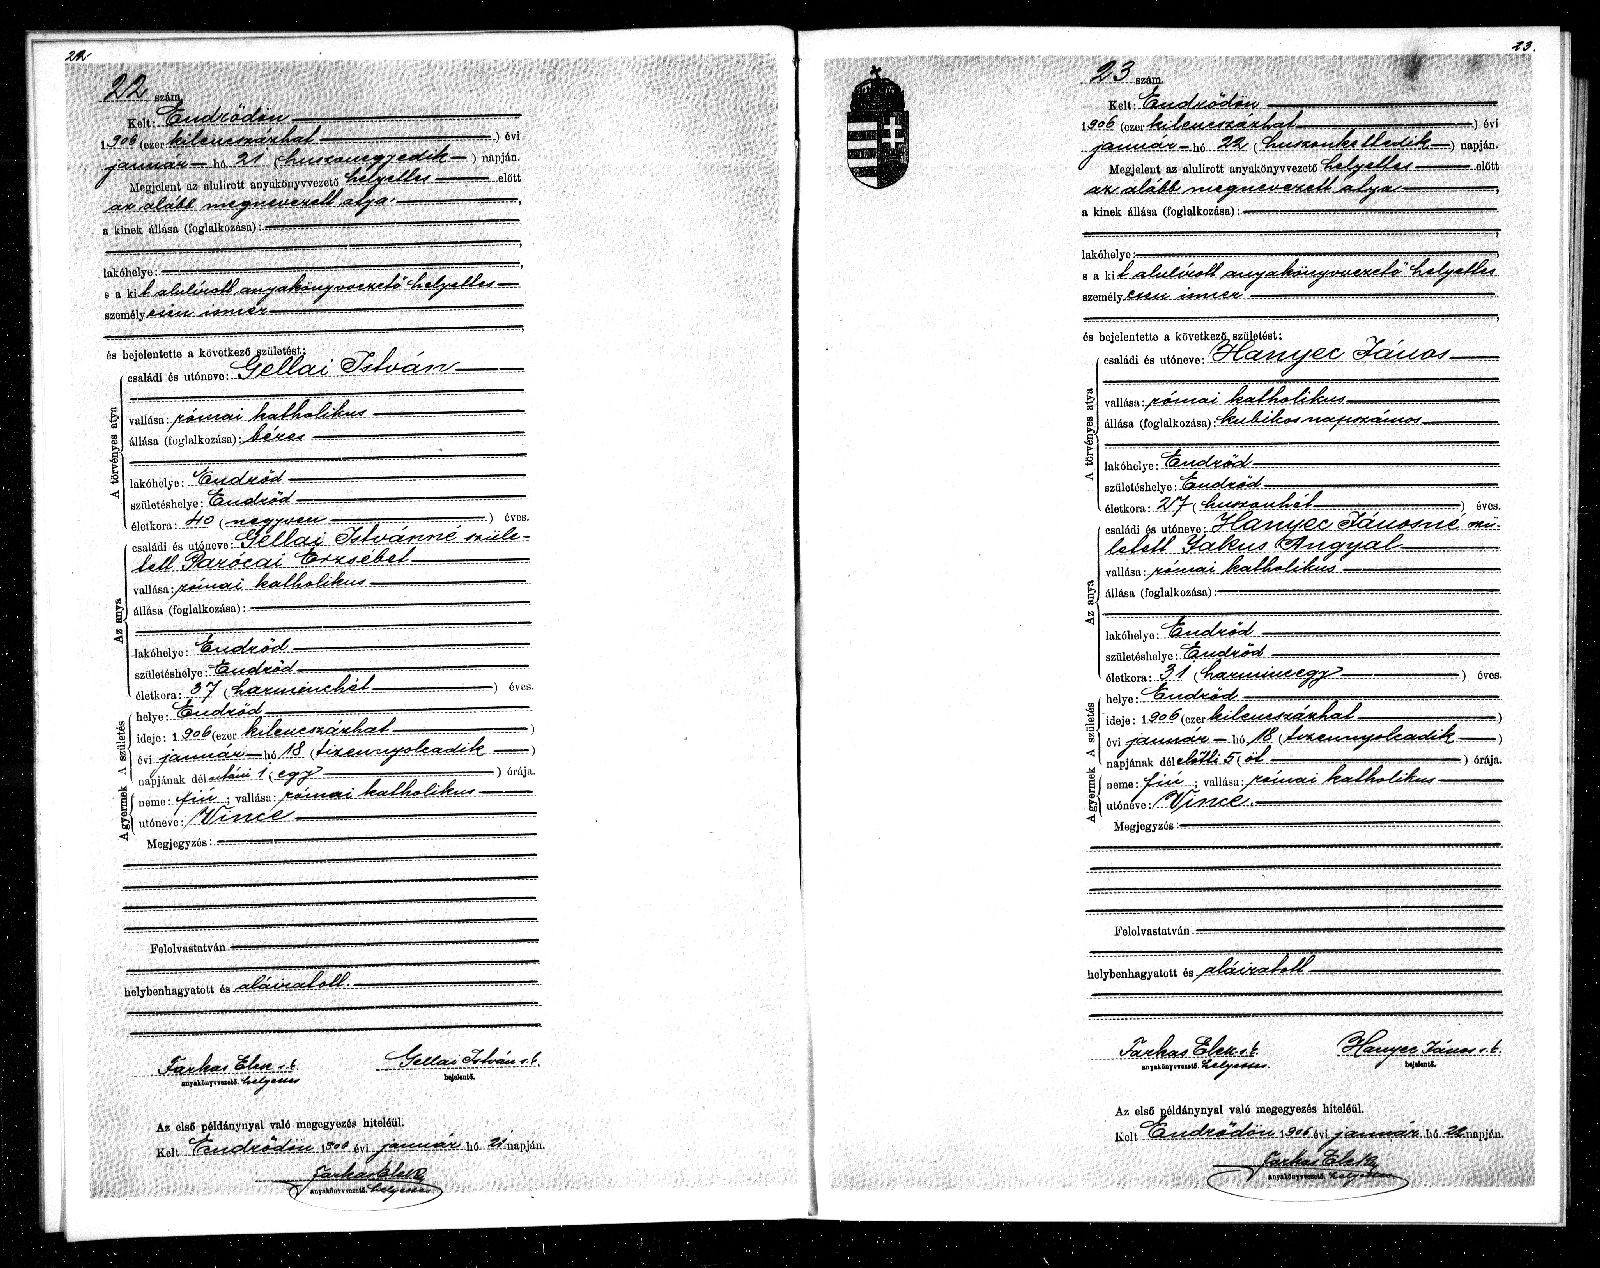 22
22 szám.
Kelt: Endrődön
1906 (ezer kilencszázhat) évi
január hó 21 (huszonegyedik) napján.
Megjelent az alulirott anyakönyvvezető helyettes előtt
az alább megnevezett atya.
a kinek állása (foglalkozása):
lakóhelye:
s a kit alulírott anyakönyvvezető helyettes
személyesen ismer
és bejelentette a következő születést:
A törvényes atya
családi és utóneve: Gellai István
vallása: római katholikus
állása (foglalkozása): béres
lakóhelye: Endrőd
születéshelye: Endrőd
életkora: 40 (negyven) éves.
Az anya
családi és utóneve: Gellai Istvánné szüle-
tett Parócai Erzsébet
vallása: római katholikus
állása (foglalkozása):
lakóhelye: Endrőd
születéshelye: Endrőd
életkora: 37 (harminchét) éves.
A születés
helye: Endrőd
ideje: 1906 (ezer kilencszázhat)
évi január hó 18 (tizennyolcadik)
napjának délutáni 1 (egy) órája.
A gyermek
neme: fiú; vallása: római katholikus
utóneve: Vince
Megjegyzés:
Felolvastatván
helybenhagyatott és aláiratott.
Farkas Elek s.k. Gellai István s.k.
anyakönyvvezető. helyettes bejelentő.
Az első példánynyal való megegyezés hiteléül.
Kelt Endrődön 1906 évi január hó 21 napján.
Farkas Elek
anyakönyvvezető. helyettes
23.
23 szám.
Kelt: Endrődön
1906 (ezer kilencszázhat) évi
január hó 22 (huszonkettedik) napján.
Megjelent az alulirott anyakönyvvezető helyettes előtt
az alább megnevezett atya
a kinek állása (foglalkozása):
lakóhelye:
s a kit alulírott anyakönyvvezető helyettes
személyesen ismer
és bejelentette a következő születést:
A törvényes atya
családi és utóneve: Hanyec János
vallása: római katholikus
állása (foglalkozása): kubikos napszámos
lakóhelye: Endrőd
születéshelye: Endrőd
életkora: 27 (huszonhét) éves.
Az anya
családi és utóneve: Hanyec Jánosné szü-
letett Jakus Angyal
vallása: római katholikus
állása (foglalkozása):
lakóhelye: Endrőd
születéshelye: Endrőd
életkora: 31 (harmincegy) éves.
A születés
helye: Endrőd
ideje: 1906 (ezer kilencszázhat)
évi január hó 18 (tizennyolcadik)
napjának délelőtti 5 (öt) órája.
A gyermek
neme: fiú; vallása: római katholikus
utóneve: Vince
Megjegyzés:
Felolvastatván
helybenhagyatott és aláiratott
Farkas Elek s.k. Hanyec János s.k.
anyakönyvvezető. helyettes. bejelentő.
Az első példánynyal való megegyezés hiteléül.
Kelt Endrődön 1906 évi január hó 22 napján.
Farkas Elek
anyakönyvvezető. helyettes